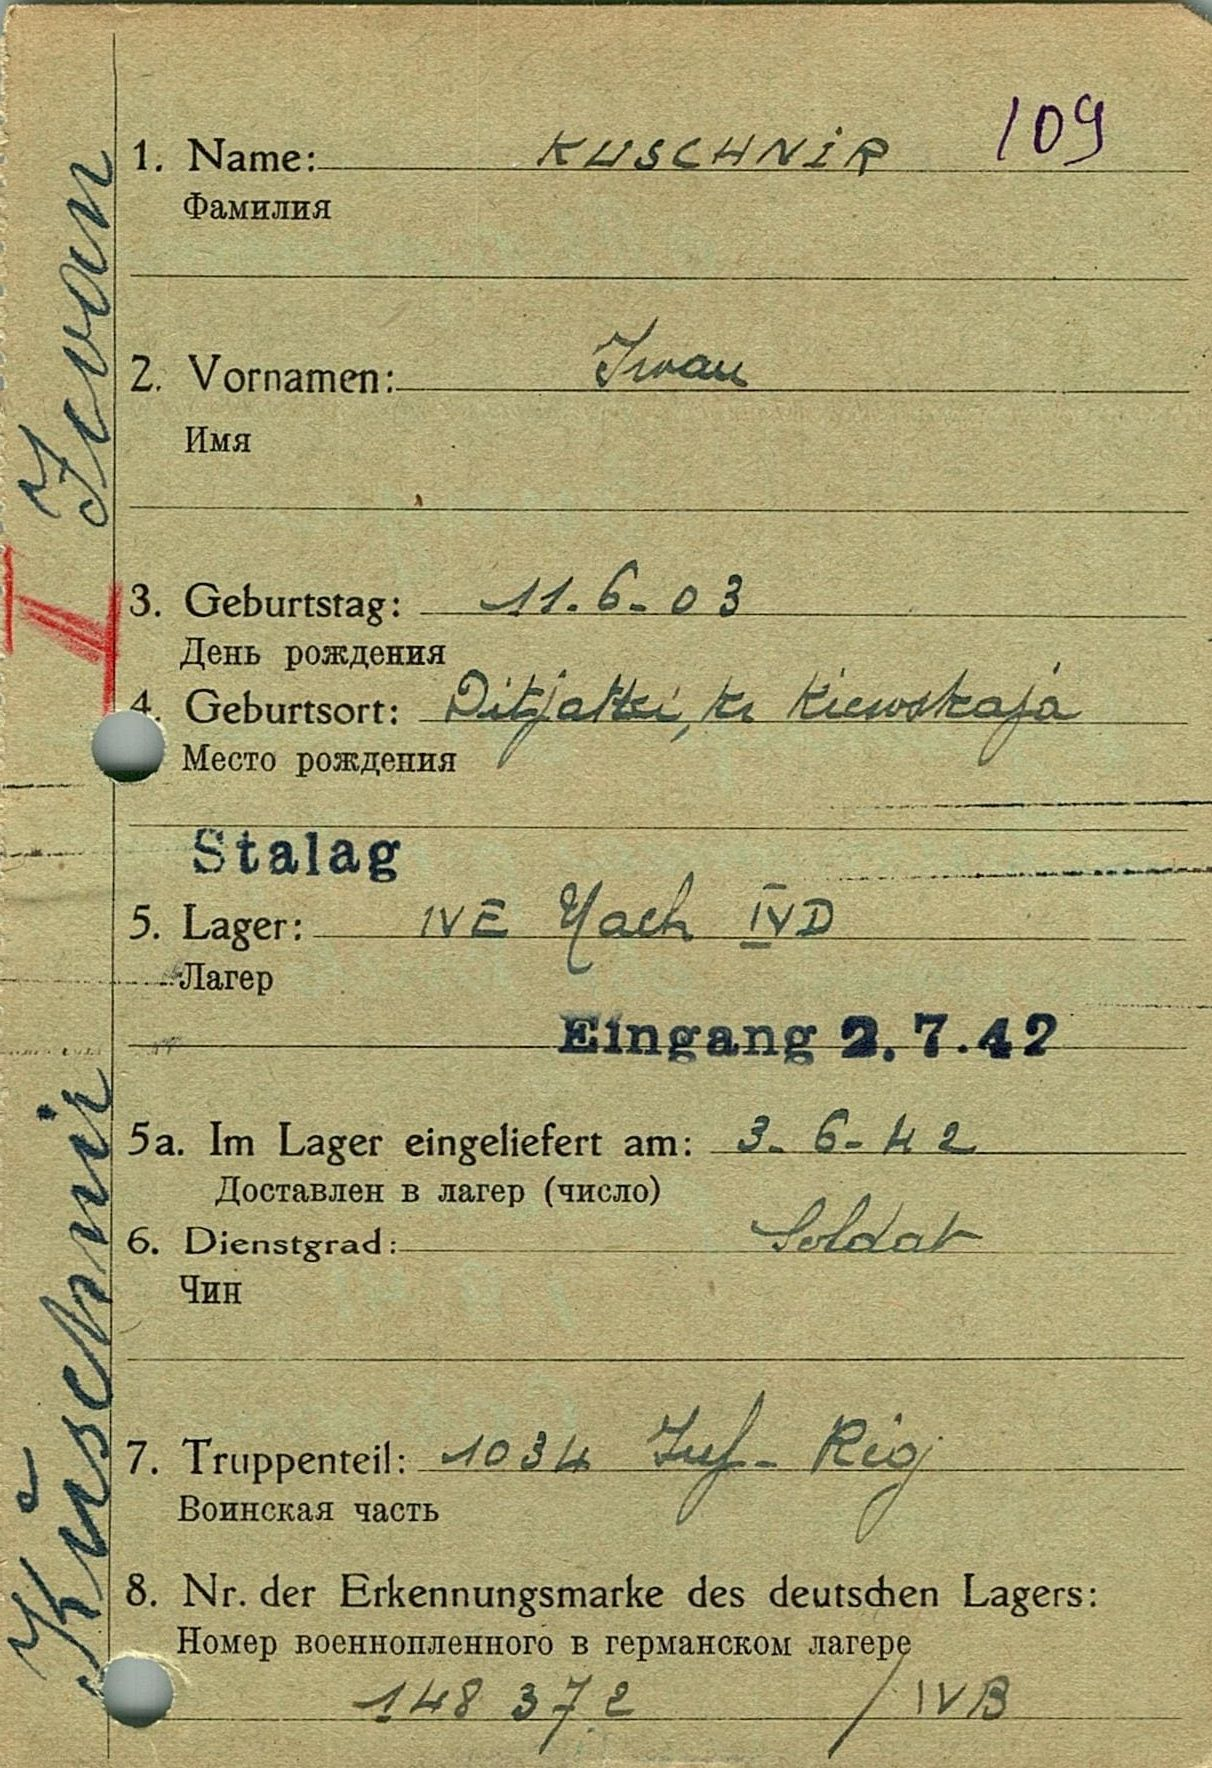 109
1. Name: KUSCHNiR
Фамилия
2. Vornamen: Iwan
Имя
3. Geburtstag: 11.6-03
День рождения
4. Geburtsort: Ditjatki, kr Kiewskaja
Место рождения
Stalag
5. Lager: IVE Nach IVD
Лагер
Eingang 2.7.42
5a. Im Lager eingeliefert am: 3-6-42
Доставлен в лагер (число)
6. Dienstgrad: Soldat
Чин
7. Truppenteil: 1034 Inf-Reg
Воинская часть
8. Nr. der Erkennungsmarke des deutschen Lagers:
Номер военнопленного в германском лагере
148 372 / IVB
Kŭschnir Iwan